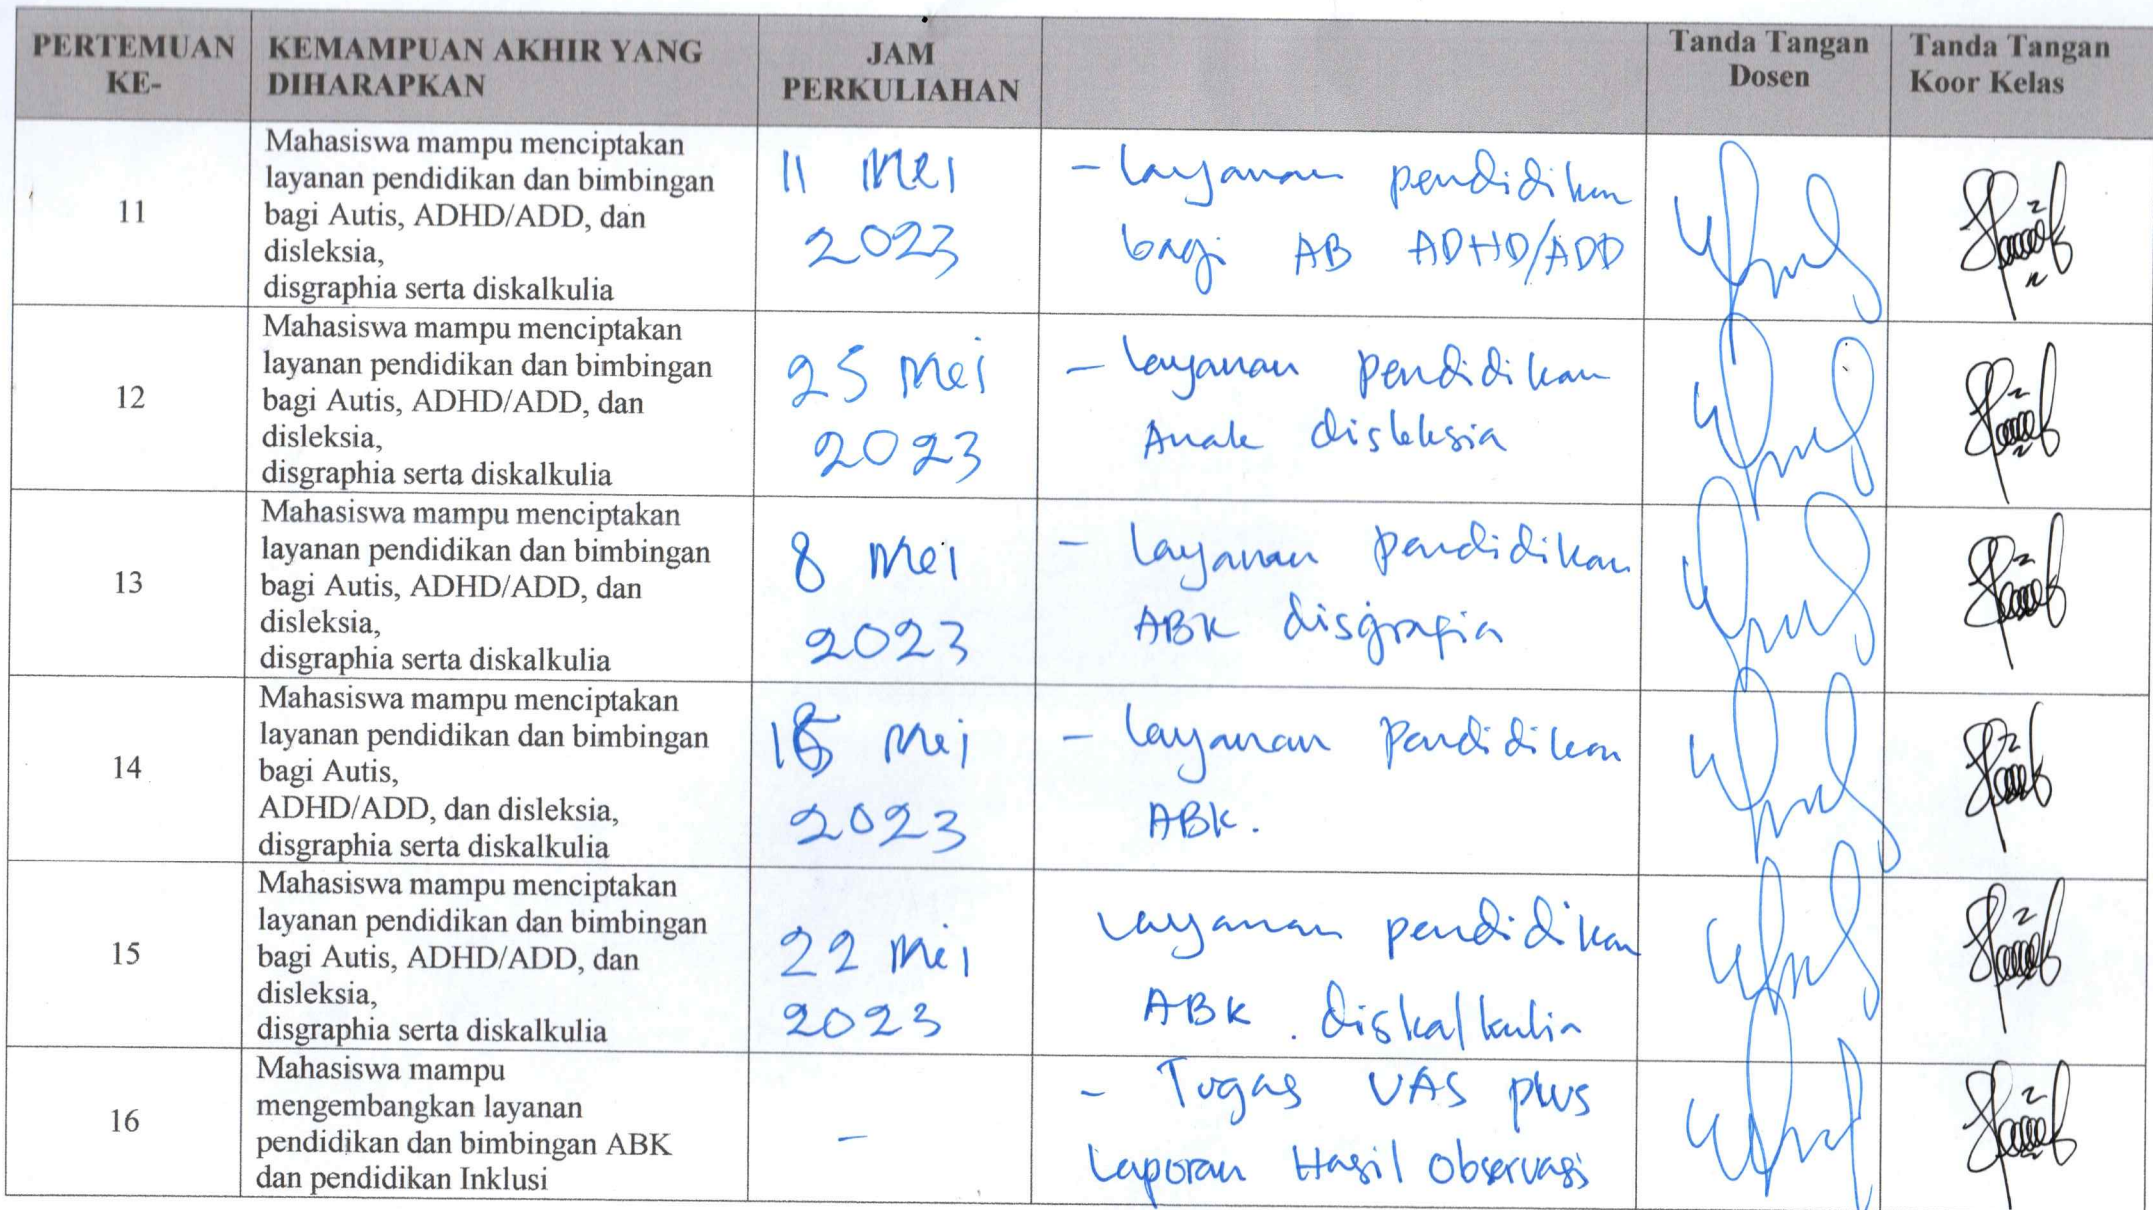 PERTEMUAN KE-
KEMAMPUAN AKHIR YANG DIHARAPKAN
JAM PERKULIAHAN
Tanda Tangan Dosen
Tanda Tangan Koor Kelas
11
Mahasiswa mampu menciptakan
layanan pendidikan dan bimbingan
bagi Autis, ADHD/ADD, dan
disleksia,
disgraphia serta diskalkulia
11 Mei
2023
- layanan pendidikan
bagi AB ADHD/ADD
12
Mahasiswa mampu menciptakan
layanan pendidikan dan bimbingan
bagi Autis, ADHD/ADD, dan
disleksia,
disgraphia serta diskalkulia
25 Mei
2023
- layanan pendidikan
Anak disleksia
13
Mahasiswa mampu menciptakan
layanan pendidikan dan bimbingan
bagi Autis, ADHD/ADD, dan
disleksia,
disgraphia serta diskalkulia
8 Mei
2023
- layanan pendidikan
ABK disgrafia
14
Mahasiswa mampu menciptakan
layanan pendidikan dan bimbingan
bagi Autis,
ADHD/ADD, dan disleksia,
disgraphia serta diskalkulia
Mei
2023
- layanan Pendidikan
ABK.
15
Mahasiswa mampu menciptakan
layanan pendidikan dan bimbingan
bagi Autis, ADHD/ADD, dan
disleksia,
disgraphia serta diskalkulia
22 Mei
2023
layanan pendidikan
ABK . diskalkulia
16
Mahasiswa mampu
mengembangkan layanan
pendidikan dan bimbingan ABK
dan pendidikan Inklusi
-
- Tugas UAS plus
Laporan Hasil Observasi